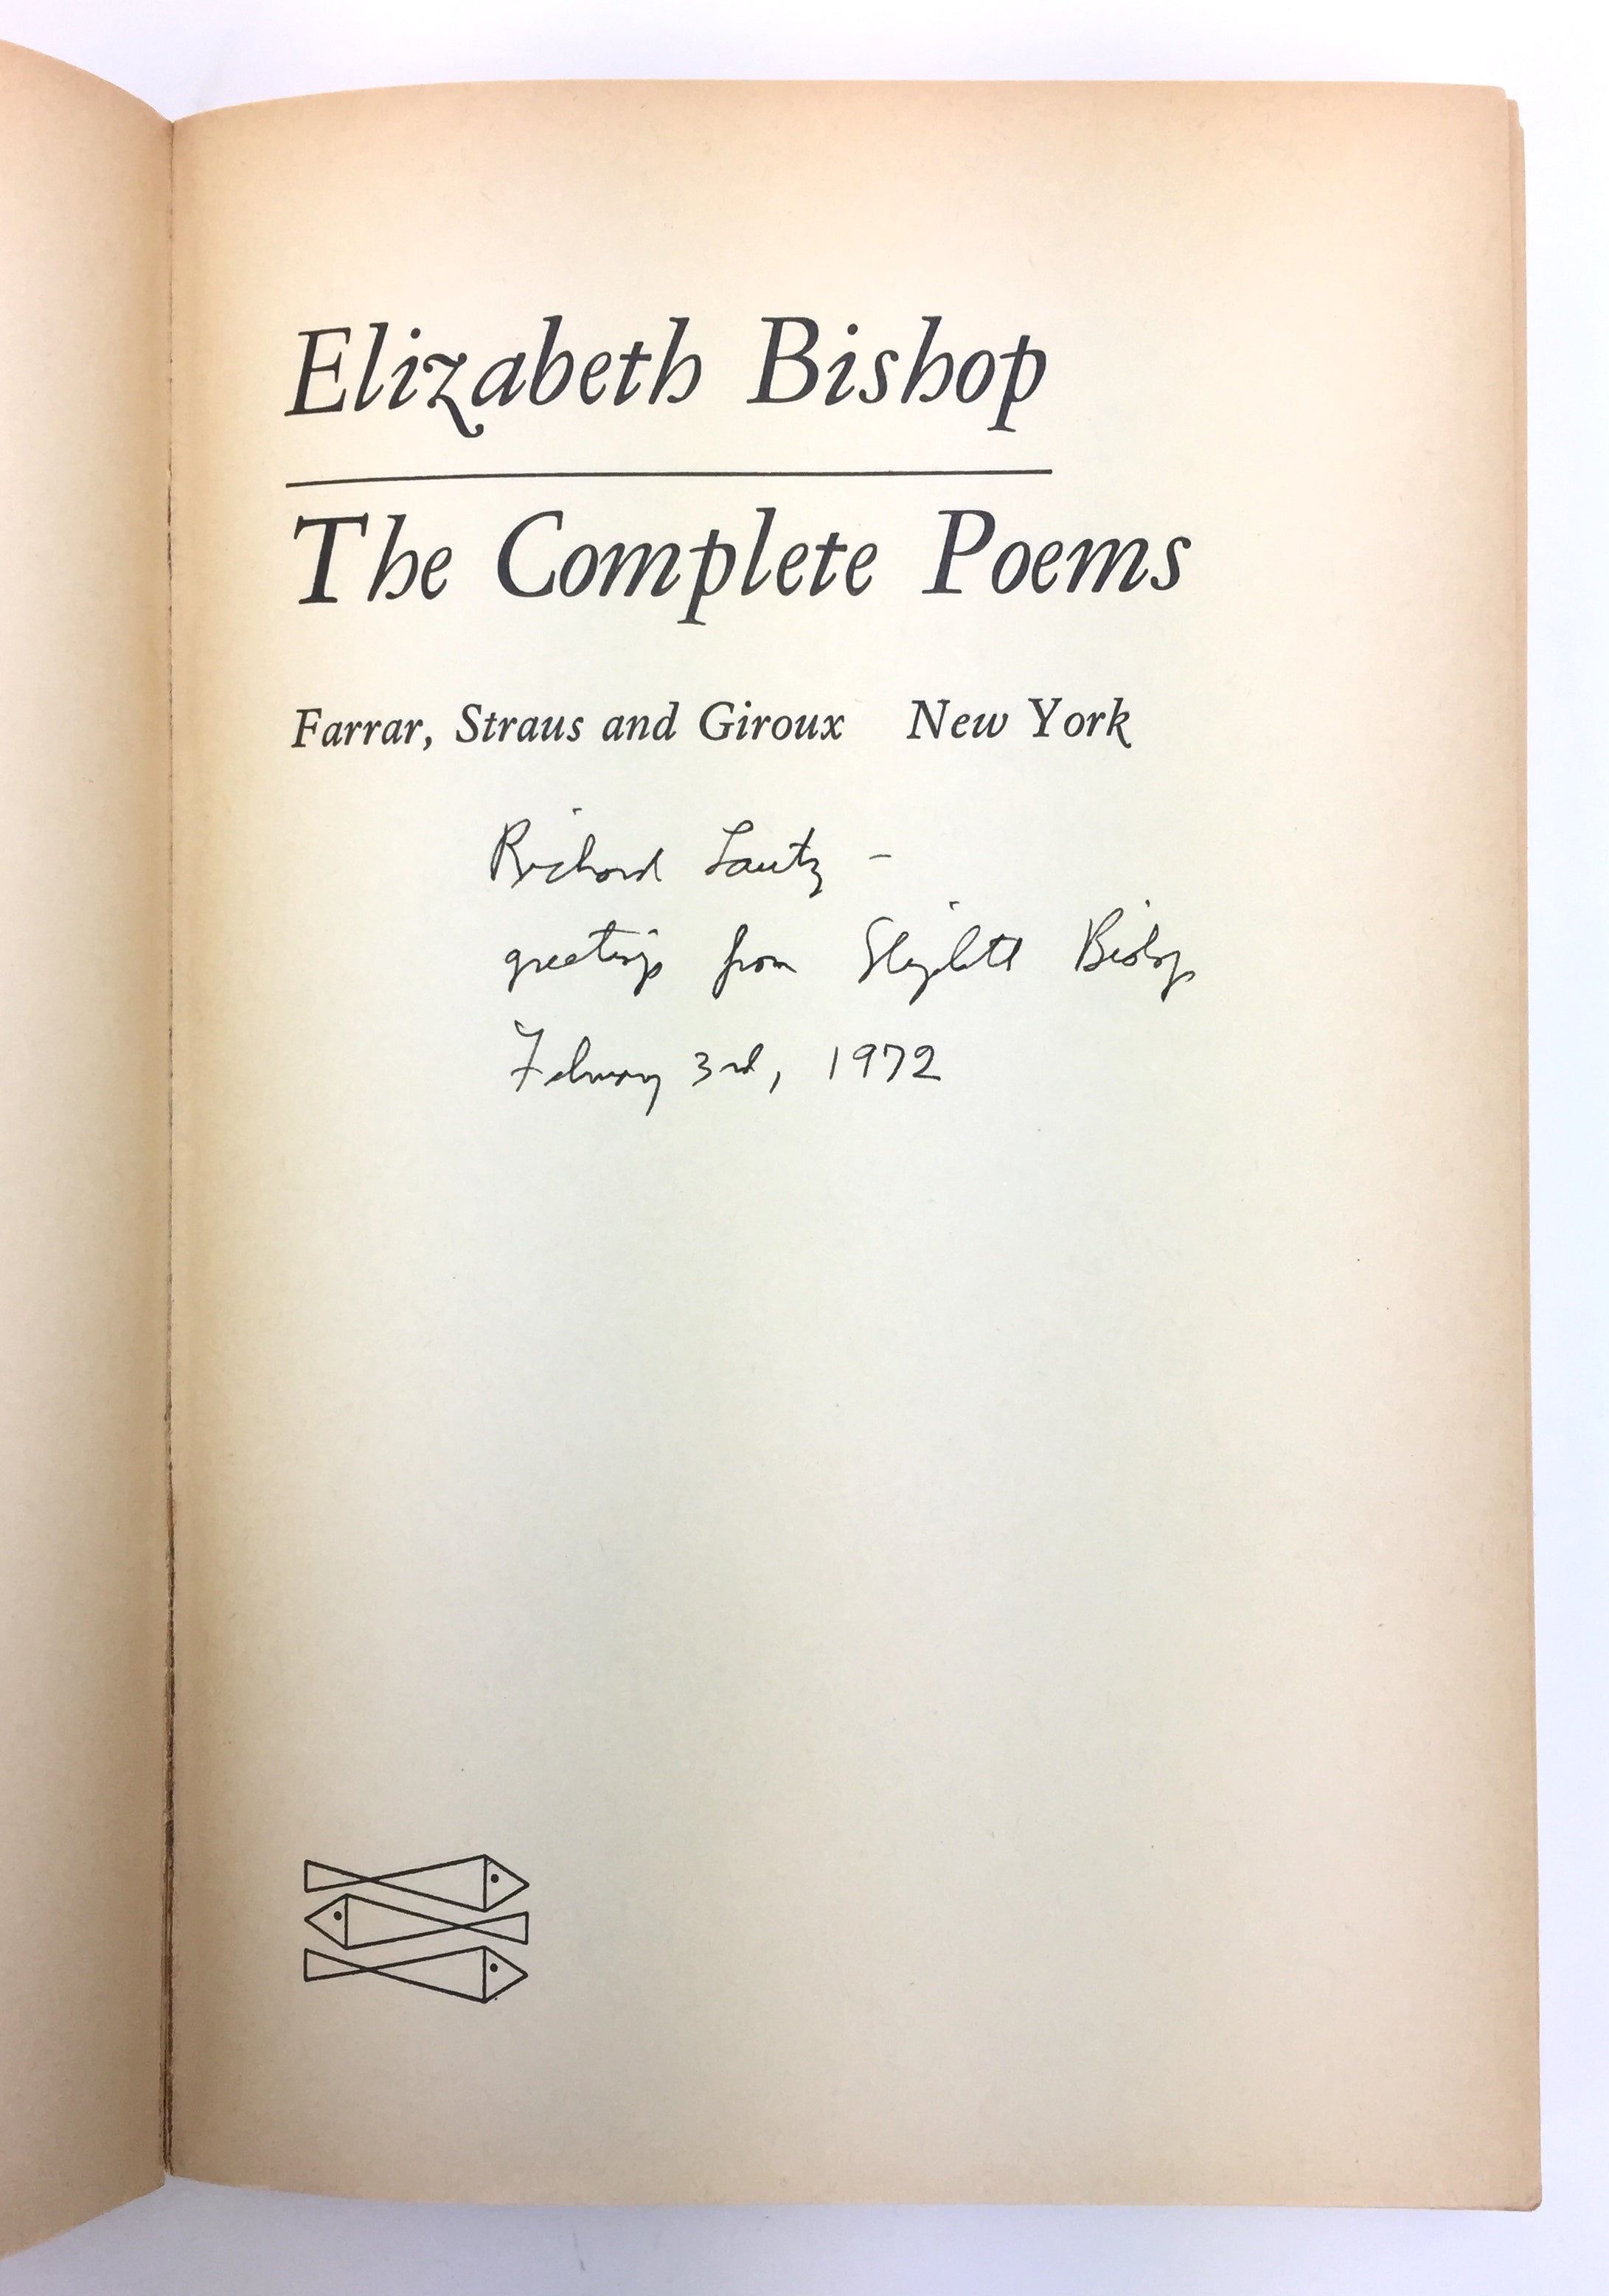 Elizabeth Bishop
The Complete Poems
Farrar, Straus and Giroux New York
Richard Lautz –
greetings from Elizabeth Bishop
February 3rd, 1972